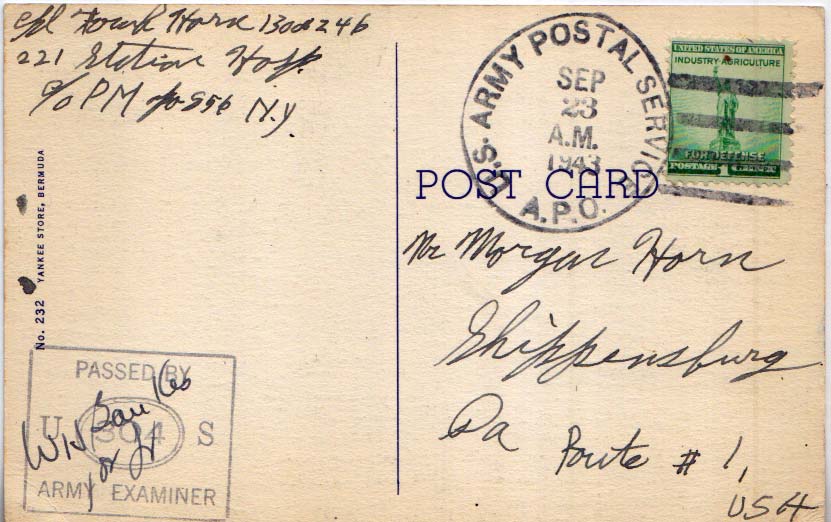 Horn
221 Station Hosp.
c/o PM N.Y.
No. 232 YANKEE STORE, BERMUDA
PASSED BY
U 304 S
ARMY EXAMINER
U.S. ARMY POSTAL SERVICE
SEP
23
A.M.
1943
A.P.O.
UNITED STATES OF AMERICA
INDUSTRY-AGRICULTURE
FOR DEFENSE
POSTAGE 1 CENT
POST CARD
Mr Morgan Horn
Shippensburg
Pa
Route # 1,
USA